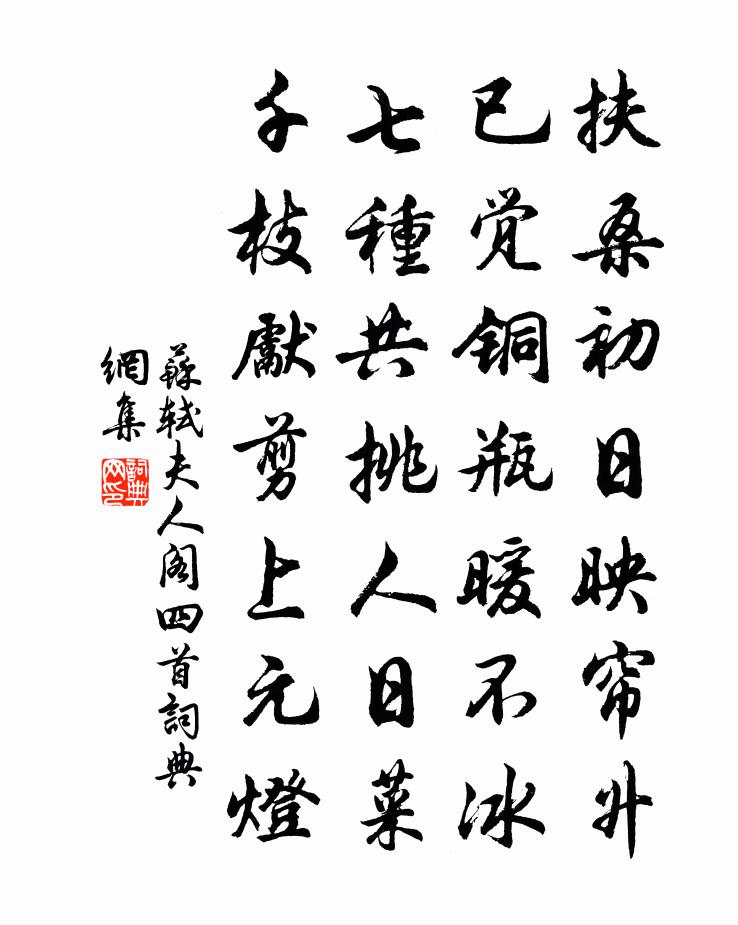 扶桑初日映帘升
已觉铜瓶暖不冰
七種共挑人日菜
千枝獻剪上元燈
蘇轼夫人阁四首詞典
網集
詞典
网印